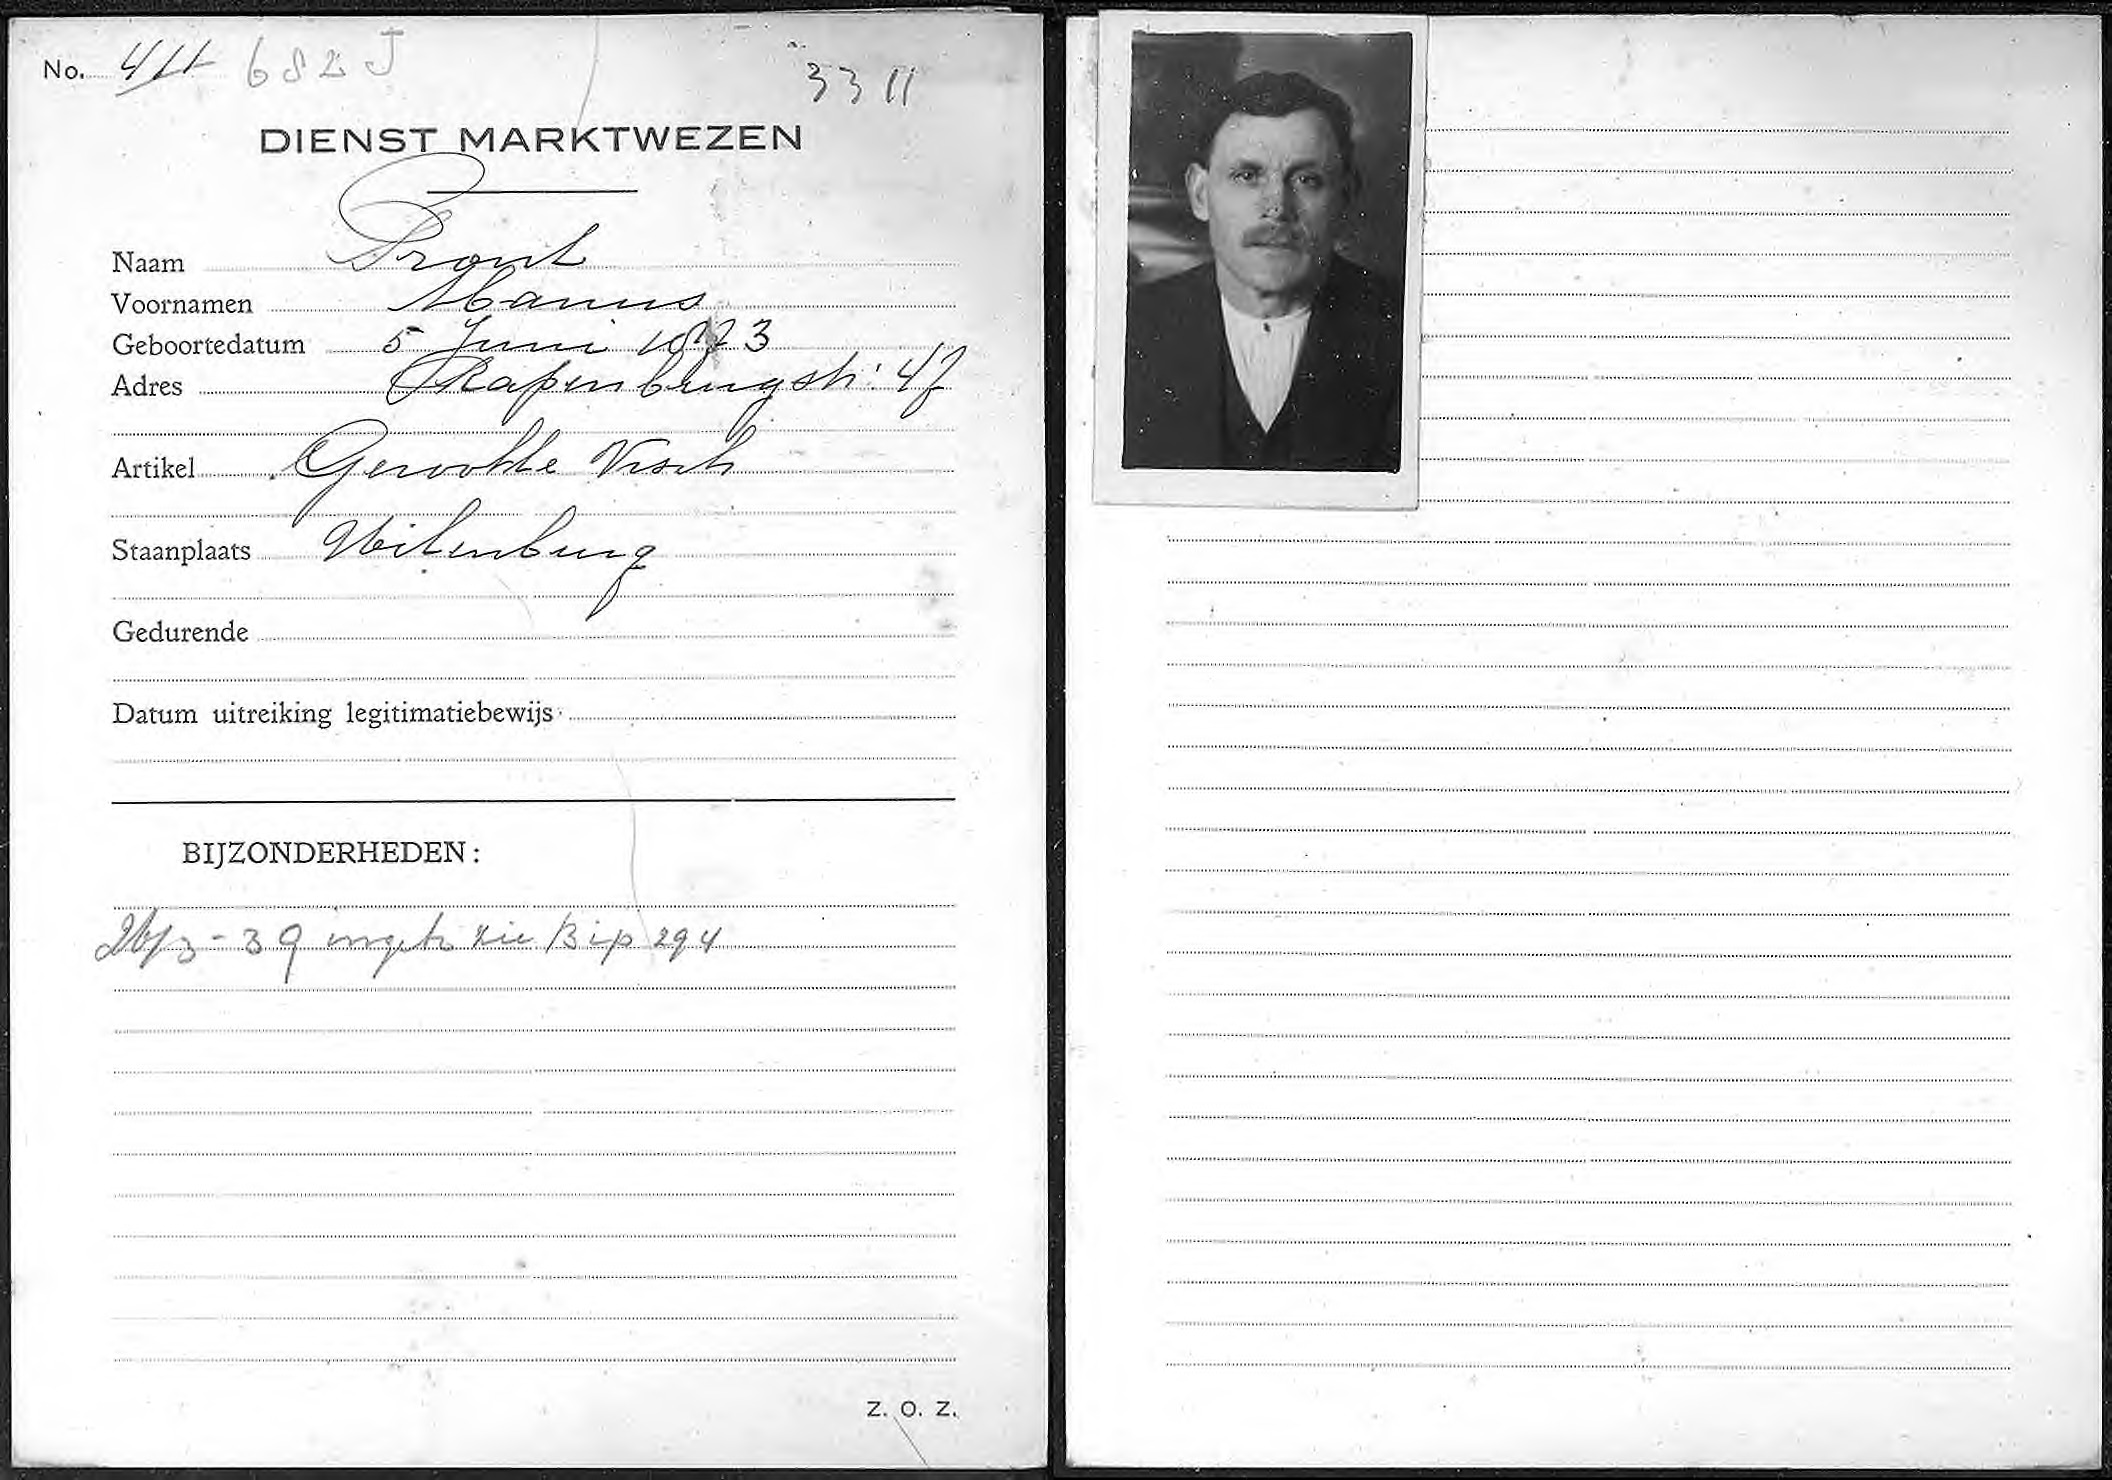 No. 411 682 J 3311
DIENST MARKTWEZEN
Naam Pront
Voornamen Manus
Geboortedatum 5 Juni 1873
Adres Rapenburgstr: 47
Artikel Gerookte Visch
Staanplaats Uilenburg
Gedurende
Datum uitreiking legitimatiebewijs
BIJZONDERHEDEN:
39 ingetr zie 294
Z. O. Z.